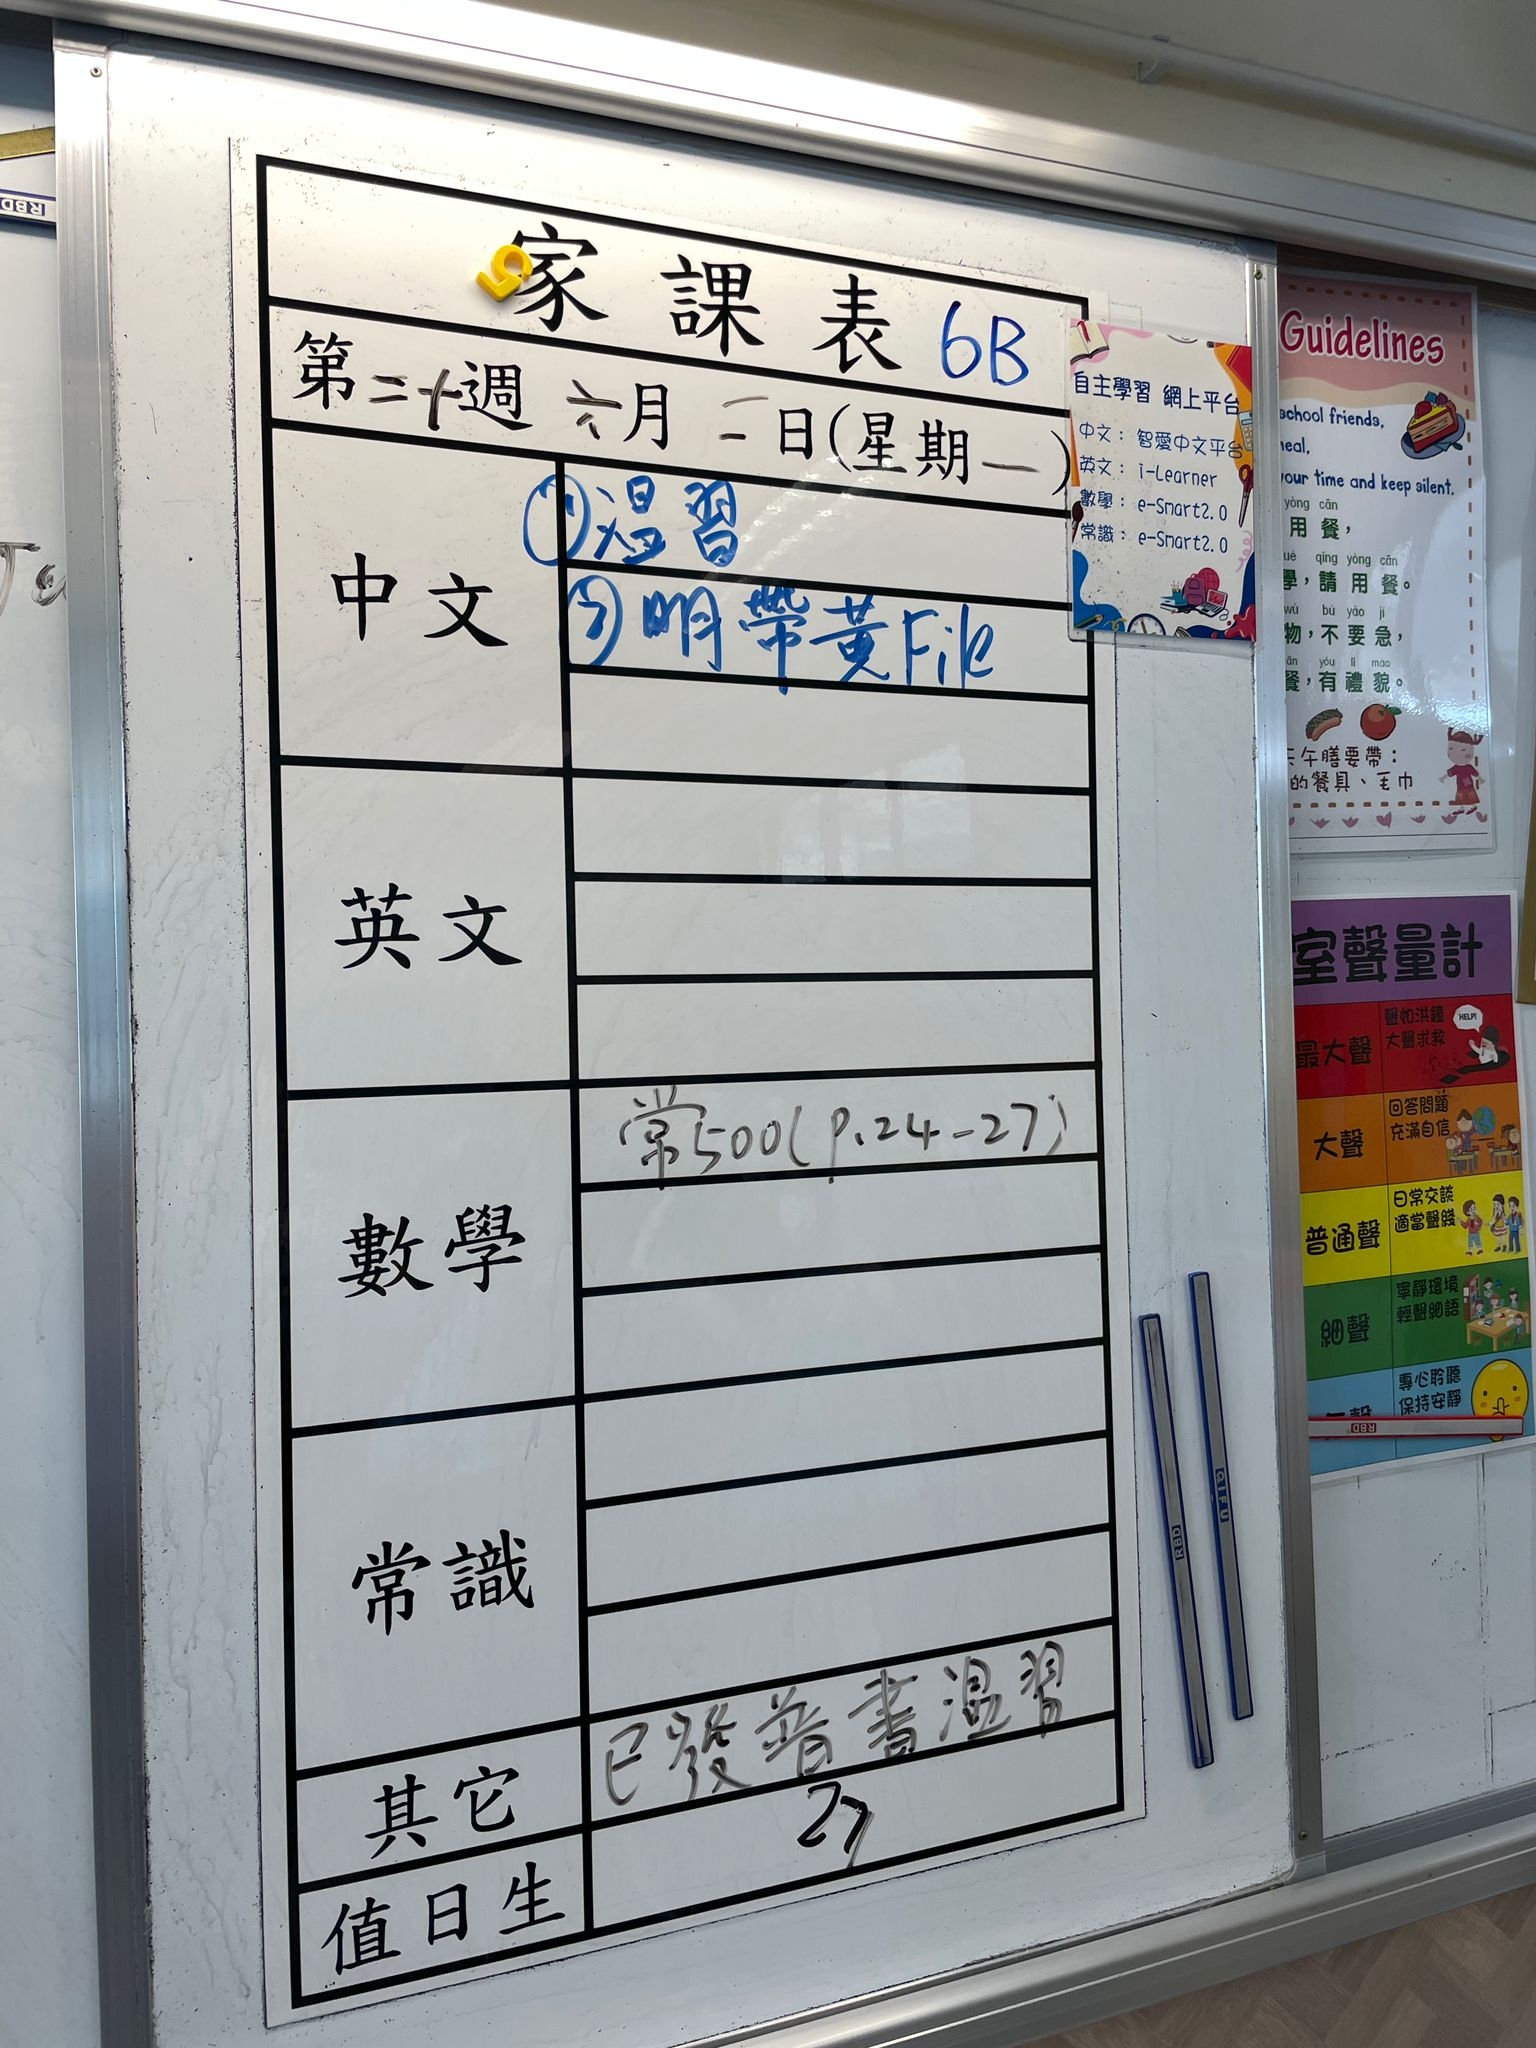 家課表 6B
第二十週 六月 二日(星期一)
中文
①温習
②明帶黃File
英文
數學
常500(P.24-27)
常識
其它
已發普書温習
值日生
27
自主學習 網上平台
中文：智愛中文平台
英文：i-Learner
數學：e-Smart2.0
常識：e-Smart2.0
Guidelines
school friends,
meal,
your time and keep silent.
yòng cān
用餐，
qǐng yòng cān
學，請用餐。
wù bú yào jí
物，不要急，
cān yǒu lǐ mào
餐，有禮貌。
午膳要帶：
的餐具、毛巾
室聲量計
最大聲
聲如洪鐘
大聲求救
HELP!
大聲
回答問題
充滿自信
普通聲
日常交談
適當聲綫
細聲
寧靜環境
輕聲細語
專心聆聽
保持安靜
RBD
RBD
QIFU
RBD